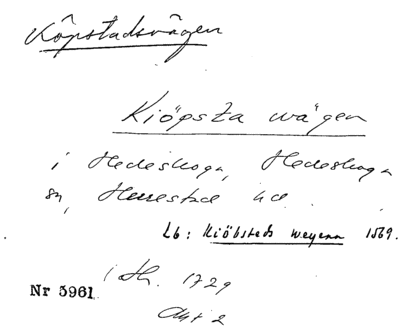 Köpstadsvägen
Kiöpsta wägen
i Hedeskoga, Hedeskoga
sn, Herrestad hd.
Lb: Kiöbstads weyenn 1569.
1729
Nr 5961
Akt 2